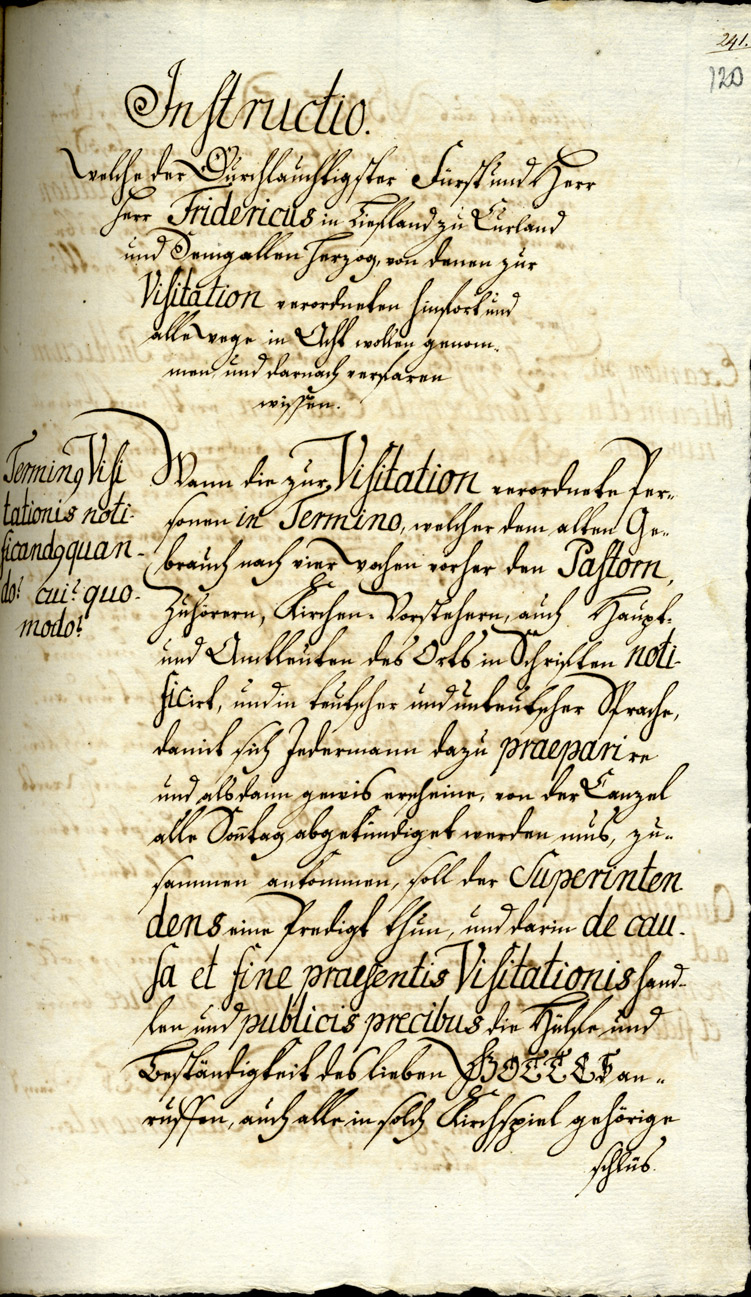 241.
120
Instructio.
welche der Durchlauchtigster Fürst und Herr
Herr Fridericus in Liefland zu Curland
und Semgallen Herzog, von denen zur
Visitation verordneten hinfort und
allewege in Acht wollen genom-
men und darnach verfaren
wissen.
Terminꝰ Visi
tationis noti-
ficandꝰ quan-
do? cui? quo-
modo?
Wann die zur Visitation verordnete Per-
sonen in Termino, welcher dem alten Ge-
brauch nach vier wochen vorher den Pastorn,
Zuhörern, Kirchen-Vorstehern, auch Haupt-
und Amtleuten des Orts in Schriften noti-
ficirt, und in teutscher und unteutscher Sprache,
damit sich Jedermann dazu praeparire
und alsdann gewis ercheine, von der Canzel
alle Sontag abgekündiget werden mus, zu-
sammen ankommen, soll der Superinten
dens eine Predigt thun, und darin de cau-
sa et fine praesentis Visitationis hand-
len und publicis precibus die Hülffe und
Beständigkeit des lieben GOTTES an-
ruffen, auch alle in solch Kirchspiel gehörige
schlüs